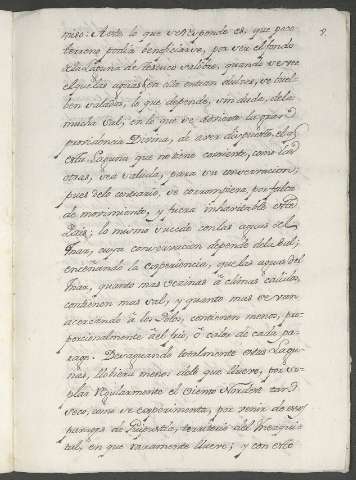 9.
miso: A esto lo que se responde es, que poco
terreno podia beneficiarse, por ser el fondo
de la Laguna de Tescuco salobre, quando se ve
el que las aguas en ella entran dulces, se buel
ven saladas, lo que depende, sin duda, de la
mucha sal, en lo que se advierte la gran
providencia Divina, de aver dispuesto, el q.
esta Laguna que no tiene corriente, como las
otras, sea salada, para su conservacion,
pues de lo contrario, se corrompiera, por falta
de movimiento, y fuera inhavitable este
Pais; lo mismo sucede con las aguas del
Mar, cuya conservacion depende de la sal;
enseñando la experiencia, que las aguas del
Mar, quanto mas vecinas à climas calidos,
contienen mas sal, y quanto mas se van
acercando à los Polos, contienen menos, pro
porcionalmente al frio, ò calor de cada pa
rage. Desaguando totalmente estas Lagu
nas, llobiera menos de lo que llueve, por so
plar regularmente el viento Nordest tan
seco, como se experimenta, por venir de los
parages de territorio del Mesquital
tal, en que raramente llueve; y con este